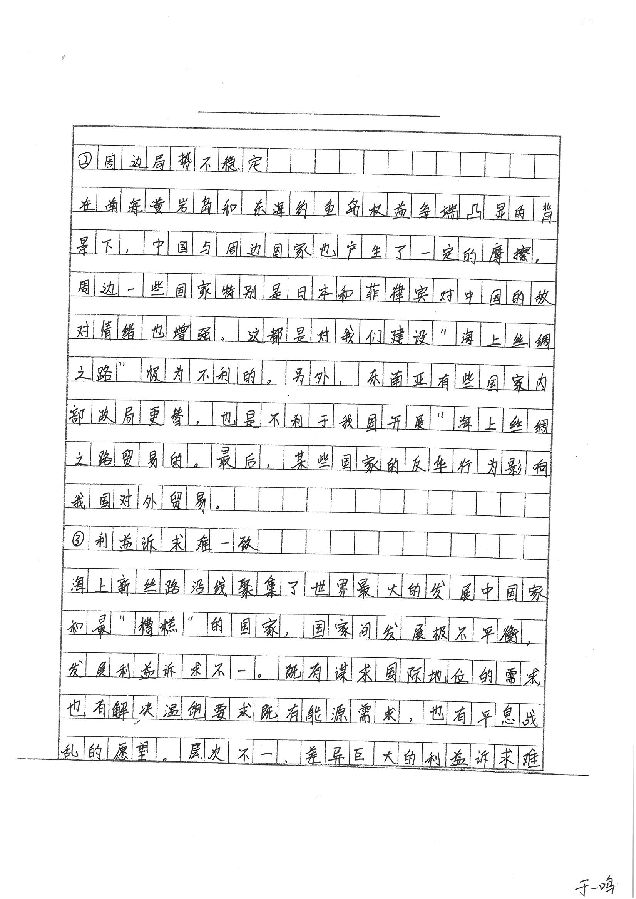 ②周边局势不稳定
在南海黄岩岛和东海钓鱼岛权益争端凸显的背
景下，中国与周边国家也产生了一定的摩擦。
周边一些国家特别是日本和菲律宾对中国的敌
对情绪也增强，这都是对我们建设“海上丝绸
之路”极为不利的。另外，东南亚有些国家内
部政局更替，也是不利于我国开展“海上丝绸
之路贸易的。最后，某些国家的反华行为影响
我国对外贸易。
③利益诉求难一致
海上新丝路沿线聚集了世界最大的发展中国家
和最“糟糕”的国家，国家间发展极不平衡，
发展利益诉求不一。既有谋求国际地位的需求
也有解决温饱要求既有能源需求，也有平息战
乱的愿望。层次不一、差异巨大的利益诉求难
于一鸣